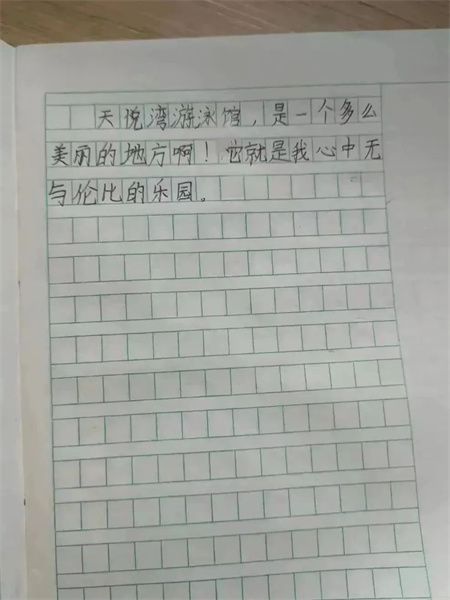 天悦湾游泳馆，是一个多么
美丽的地方啊！它就是我心中无
与伦比的乐园。